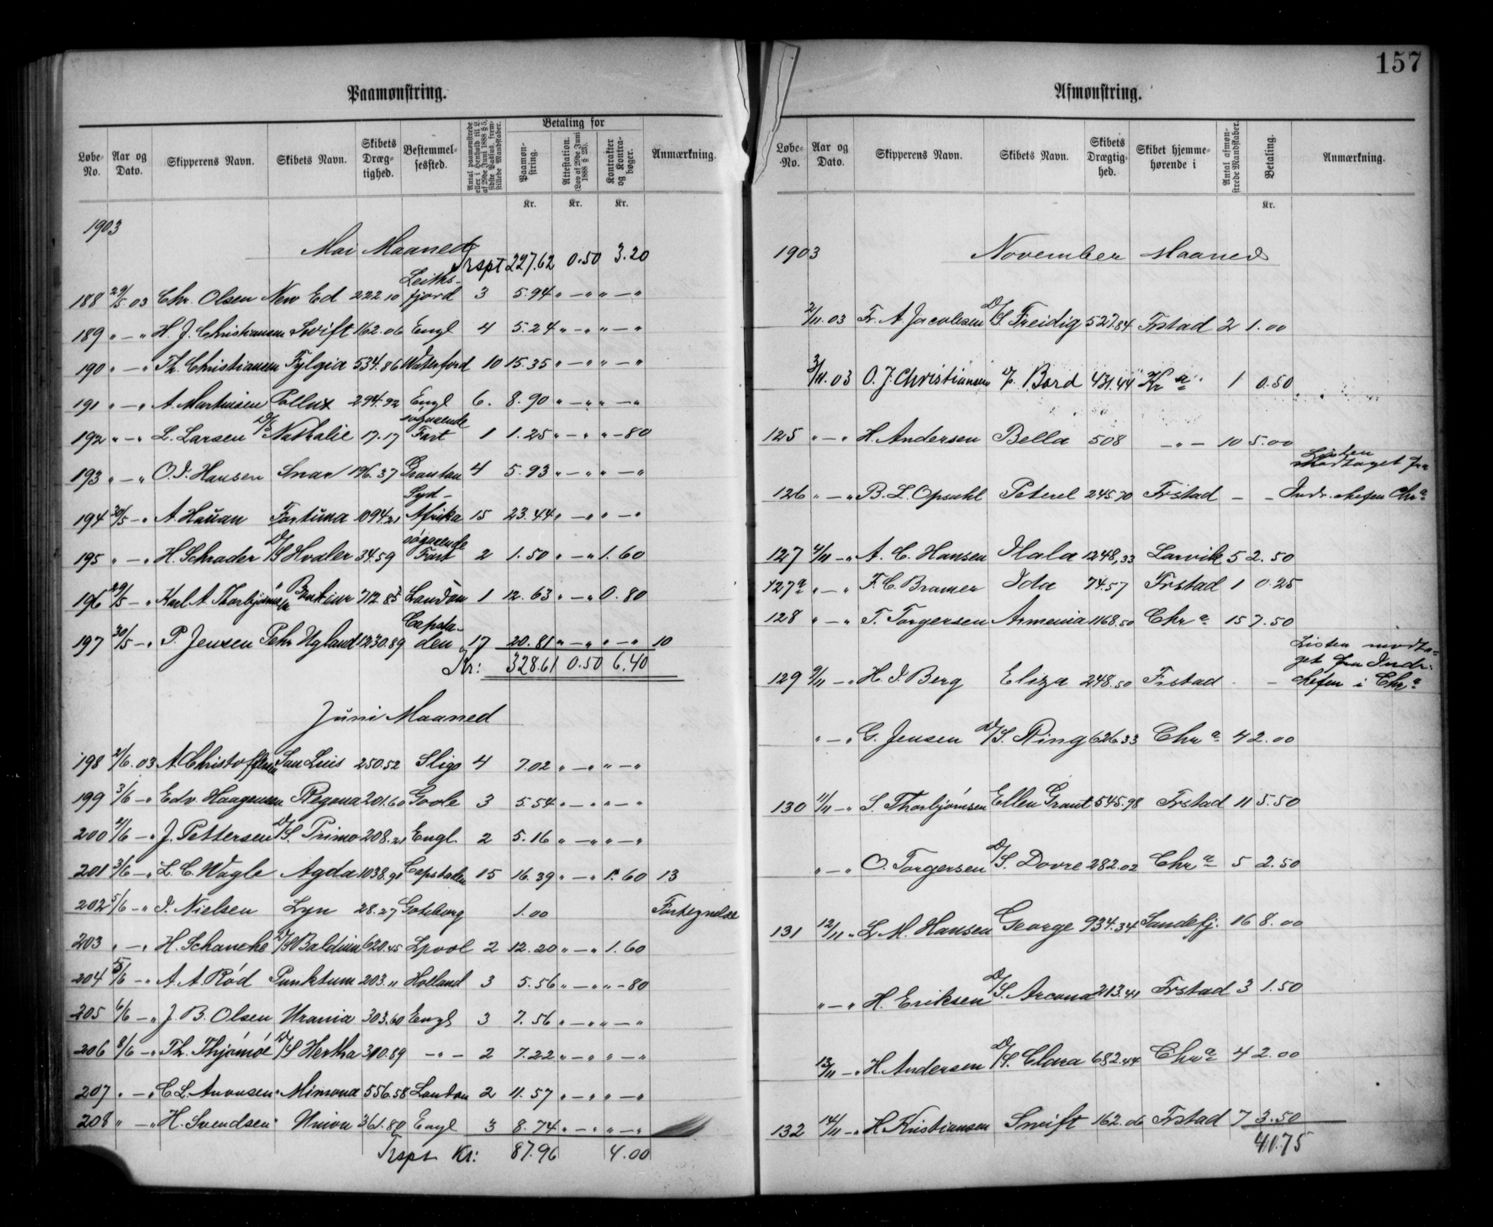 157
Paamønstring.
Løbe-No. Aar og Dato. Skipperens Navn. Skibets Navn. Skibets Dræg-tighed. Bestemmel-sessted. Betaling for Paamøn-string. Attestation. (Lov af 29de Juni 1888 § 25). Kontrakter og Kontra-bøger. Anmærkning.
Kr. Kr. Kr.
1903
Mai Maaned
Trspt 227.62 0.50 3.20
188 29/5 03 Chr. Olsen New Ed 222.10 Leiths-fjord 3 5.94 " — " " — "
189 " — " H. J. Christiansen Swift 162.06 Engl 4 5.24 " — " " — "
190 " — " Th. Christiansen Fylgia 534.86 Waterford 10 15.35 " — " " — "
191 " — " A. Martinsen Pollux 294.92 Engl 6. 8.90 " — " " — "
192 " — " L. Larsen D/S Nathalie 17.17 søgaaende Fart 1 1.25 " — " " - 80
193 " — " O. J. Hansen Snar 176.37 Grantan 4 5.93 " — " " — "
194 30/5 — " A Hauan Fortuna 1094.21 Syd-Afrika 15 23.44 " — " " — "
195 " — " H. Schrader D/S Hvaler 34.59 søgaaende Fart 2 1.50 " — " 1.60
196 29/5 — " Karl A. Thorbjørnsen 712.83 London 1 12.63 " — " 0.80
197 30/5 — " P. Jensen Pehr Ugland 1230.89 Capsta-den 17 20.81 " — " " — " 10
Kr: 328.61 0.50 6.40
Juni Maaned
198 2/6 03 A. Christoffersen San Luis 250.52 Sligo 4 7.02 " — " " — "
199 3/6 — " Edv. Haagensen Regona 201.60 Goole 3 5.54 " — " " — "
200 2/6 — " J. Pettersen D/S. Primo 208.21 Engl. 2 5.16 " — " " — "
201 3/6 — " L. C. Wagle Agda 1038.91 Capstaden 15 16.39 " — " 1.60 13
202 5/6 — " J. Nielsen Lyn 28.27 Goteborg 1.00 Fortegnelse
203 " — " H. Schanche D/S Balduin 620.45 Lpool 2 12.20 " — " 1.60
204 5/6 — " A. A. Rød Punktum 203.11 Holland 3 5.56 " — " " - 80
205 6/6 — " J. B. Olsen Urania 303.60 Engl 3 7.56 " — " " — "
206 8/6 — " Th. Thjømøe D/S Hertha 310.89 — " — 2 7.22 " — " " — "
207 " — " C. L. Aronsen Mimona 556.58 London 2 11.57 " — " " — "
208 " — " H. Svendsen Union 361.80 Engl 3 8.74 " — " " — "
Trspt Kr: 87.96 4.00
Afmønstring.
Løbe-No. Aar og Dato. Skipperens Navn. Skibets Navn. Skibets Drægtig-hed. Skibet hjemme-hørende i Antal afmøn-strede Mandskaber. Betaling. Anmærkning.
Kr.
1903 November Maaned
2/11 03 Fr. A Jacobsen D/S Freidig 527.84 Frstad 2 1.00
3/11 03 O. J. Christiansen Bard 431.44 Kr a 1 0.50
125 " — " H. Andersen Bella 508 — " — 10 5.00
126 " — " B. L. Opsahl Peterel 245.70 Frstad — — Listen modtaget fra Indr. chefen Chr.a
127 4/11 — " A. C. Hansen Hala 1248,33 Larvik 5 2.50
127a " — " F. C. Bramer Ida 74.57 Frstad 1 0.25
128 " — " T. Torgersen Armenia 1168.50 Chr a 15 7.50
129 9/11 — " H. J. Berg Eliza 248.50 Frstad — Listen modta-get fra Indr. chefen i Chr.a
" — " G. Jensen D/S. Ring 626.33 Chr a 4 2.00
130 11/11 — " S. Thorbjørnsen Ellen Grant 545.98 Frstad 11 5.50
" — " O. Torgersen D/S. Dovre 282.02 Chr a 5 2.50
131 12/11 — " L. M. Hansen George 934.34 Sandefj. 16 8.00
" — " H. Eriksen D/S. Arcona 213.41 Frstad 3 1.50
13/11 — " H. Andersen D/S. Clara 682.44 Chr a 4 2.00
132 14/11 — " H. Kristiansen Swift 162.06 Frstad 7 3.50
41.75